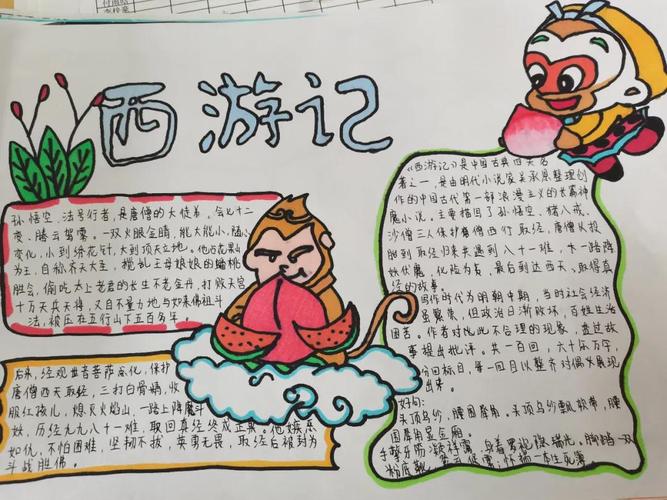 西游记
孙悟空,法号行者,是唐僧的大徒弟,会七十二
变、腾云驾雾。一双火眼金睛,能大能小,随心
变化,小到绣花针,大到顶天立地。他占花果山
为王,自称齐天大圣,搅乱王母娘娘的蟠桃
胜会,偷吃太上老君的长生不老金丹,打败天宫
十万天兵天将,又自不量力地与如来佛祖斗
法,被压在五行山下五百多年。
后来,经观世音菩萨点化,保护
唐僧西天取经,三打白骨精,收
服红孩儿,熄灭火焰山,一路上降魔斗
妖,历经九九八十一难,取回真经终成正果。他嫉恶
如仇,不怕困难,坚韧不拔,英勇无畏,取经后被封为
斗战胜佛。
《西游记》是中国古典四大名
著之一,是由明代小说家吴承恩整理创
作的中国古代第一部浪漫主义的长篇神
魔小说。主要描写了孙悟空、猪八戒、
沙僧三人保护唐僧西行取经,唐僧从投
胎到取经归来共遇到八十一难,一路降
妖伏魔,化险为夷,最后到达西天、取得真
经的故事。
写作时代为明朝中期,当时社会经济
虽繁荣,但政治日渐败坏,百姓生活
困苦。作者对此不合理的现象,透过故
事提出批评。共一百回,六十余万字,
分回标目,每一回目以整齐对偶展现
出来。
好句:
头顶乌纱,腰围犀角。头顶乌纱飘软带,腰
围犀角显金厢。
手擎牙笏凝祥霭,身着罗袍隐瑞光。脚踏一双
粉底靴,登云促雾;怀揣一本生死簿